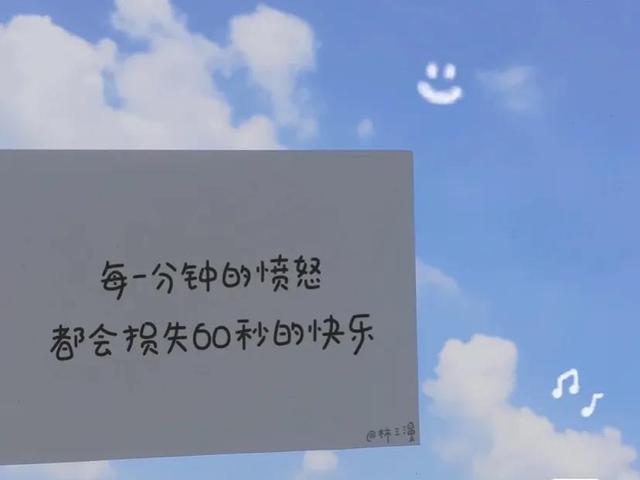 每一分钟的愤怒
都会损失60秒的快乐
@林三漫